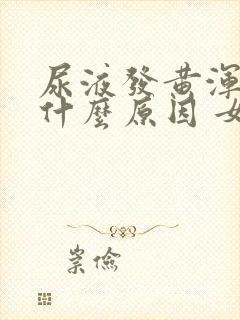 尿液發黃渾
什麼原因 女
崇儉